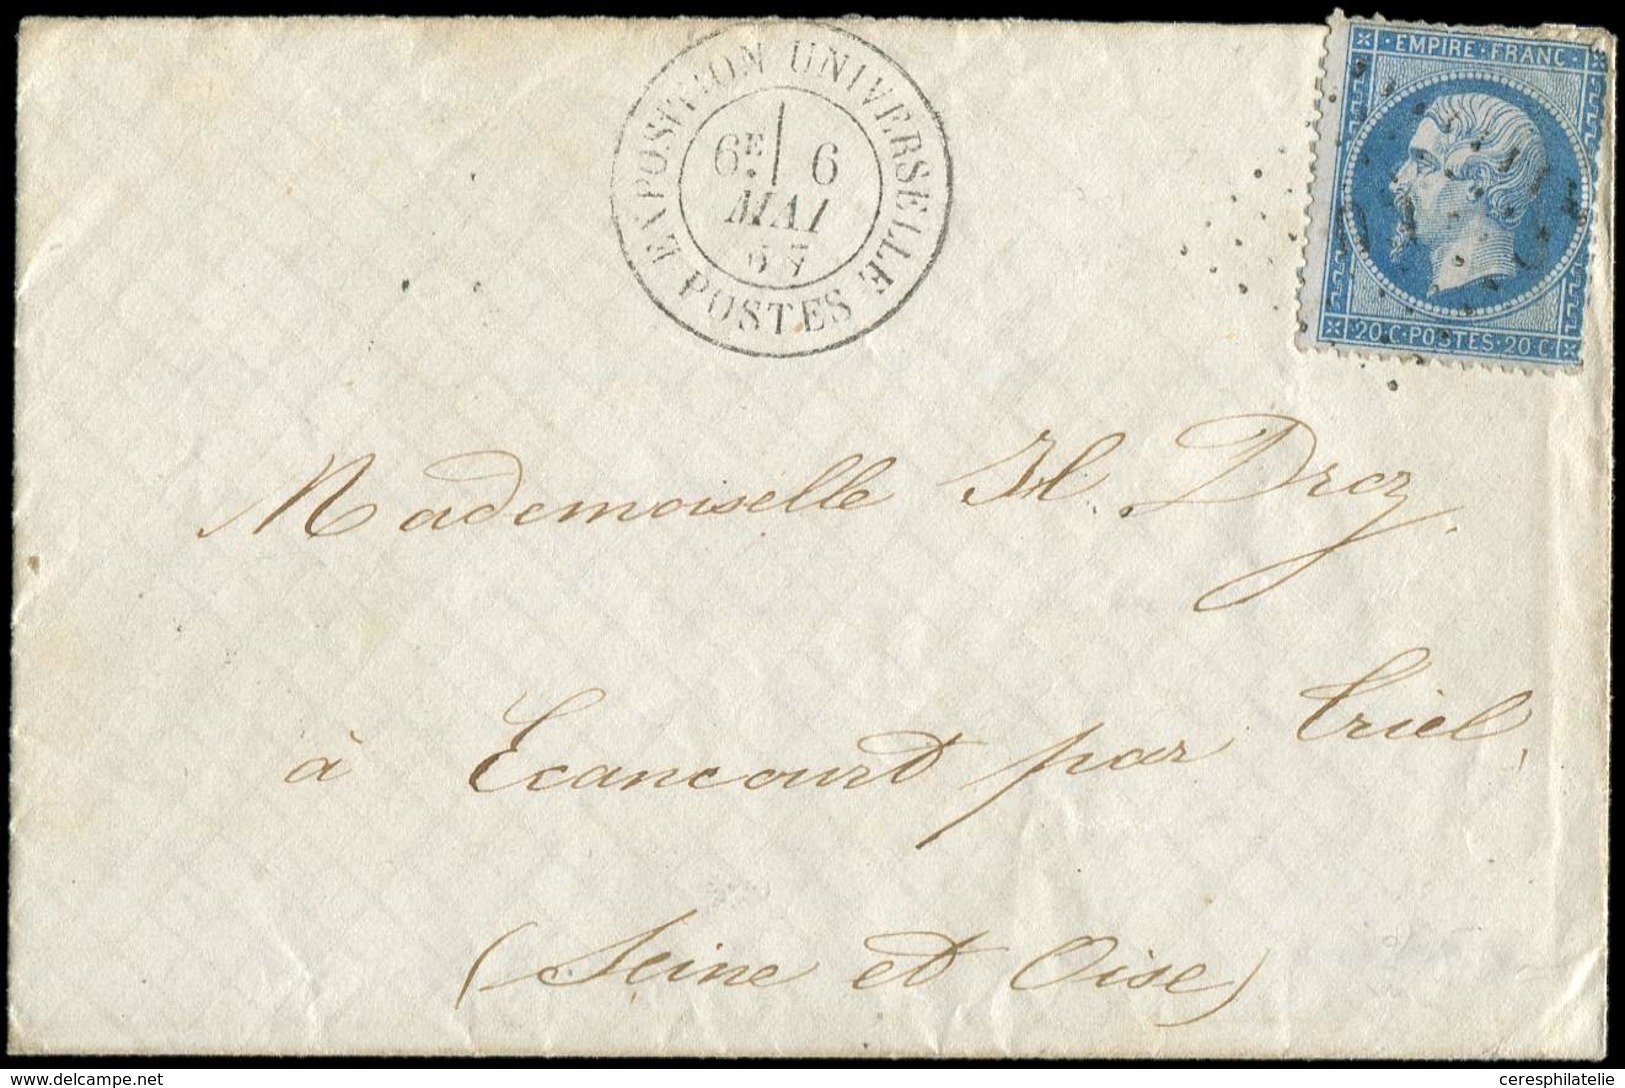 EXPOSITION UNIVERSELLE
6E 6
MAI
67
POSTES
EMPIRE · FRANC
20 · C · POSTES · 20 · C
Mademoiselle H. Droz.
à Ecancourt par Triel,
(Seine et Oise)
www.delcampe.net
ceresphilatelie